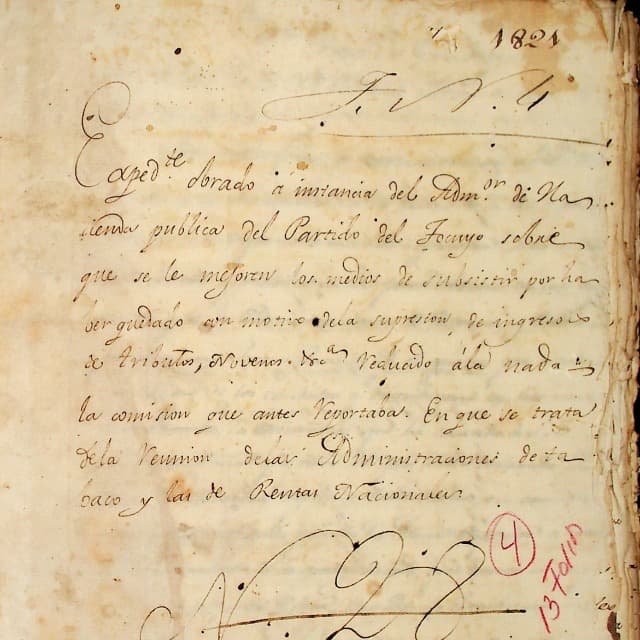 1821
F. N. 4
Exped.te obrado á instancia del Adm.or de Ha
cienda publica del Partido del Tocuyo sobre
que se le mejoren los medios de subsistir por ha
ber quedado con motivo dela supresion, de ingresos
de tributos, Novenos &a reducido álá nada
la comision que antes reportaba. En que se trata
dela reunion delas Administraciones de ta
baco y las de Rentas Nacionales.
4
13 Folios